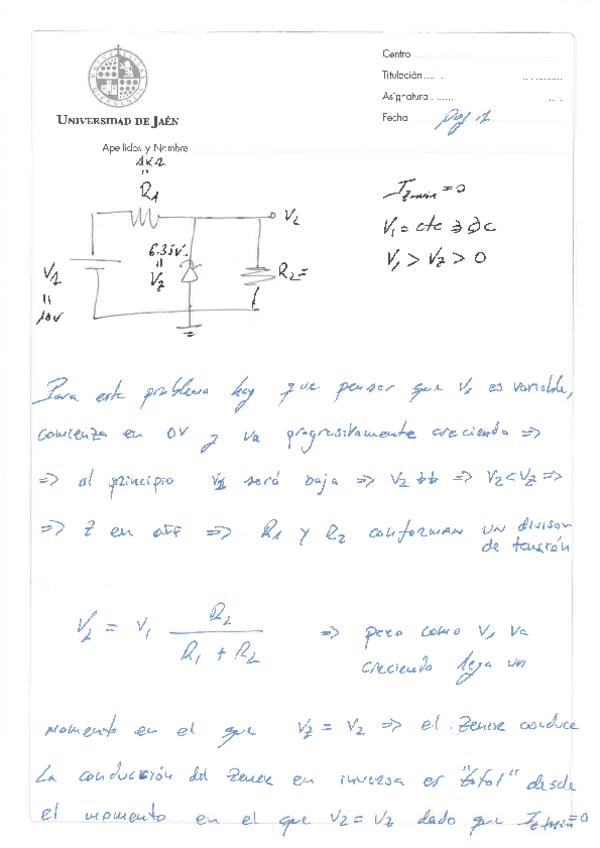 Centro
Titulación
Asignatura
Fecha pag 1
UNIVERSIDAD DE JAÉN
Apellidos y Nombre
1K2
R1
V2
6.35V
VZ
R2=
V1
10V
IZmin = 0
V1 = cte DC
V1 > VZ > 0
Para este problema hay que pensar que V1 es variable,
comienza en 0V y va progresivamente creciendo =>
=> al principio V1 será baja => V2 ↓↓ => V2 < VZ =>
=> Z en off => R1 y R2 conforman un divisor
de tensión
V2 = V1 R2 / (R1 + R2) => pero como V1 va
creciendo llega un
momento en el que VZ = V2 => el Zener conduce
La conducción del Zener en inversa es "total" desde
el momento en el que V2 = VZ dado que IZmin=0